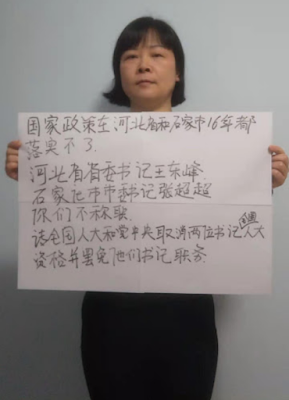 国家政策在河北省和石家市16年都
落实不了.
河北省省委书记王东峰.
石家庄市市委书记张超超
你们不称职.
请全国人大和党中央取消两位书记全国人大
资格并罢免他们书记职务